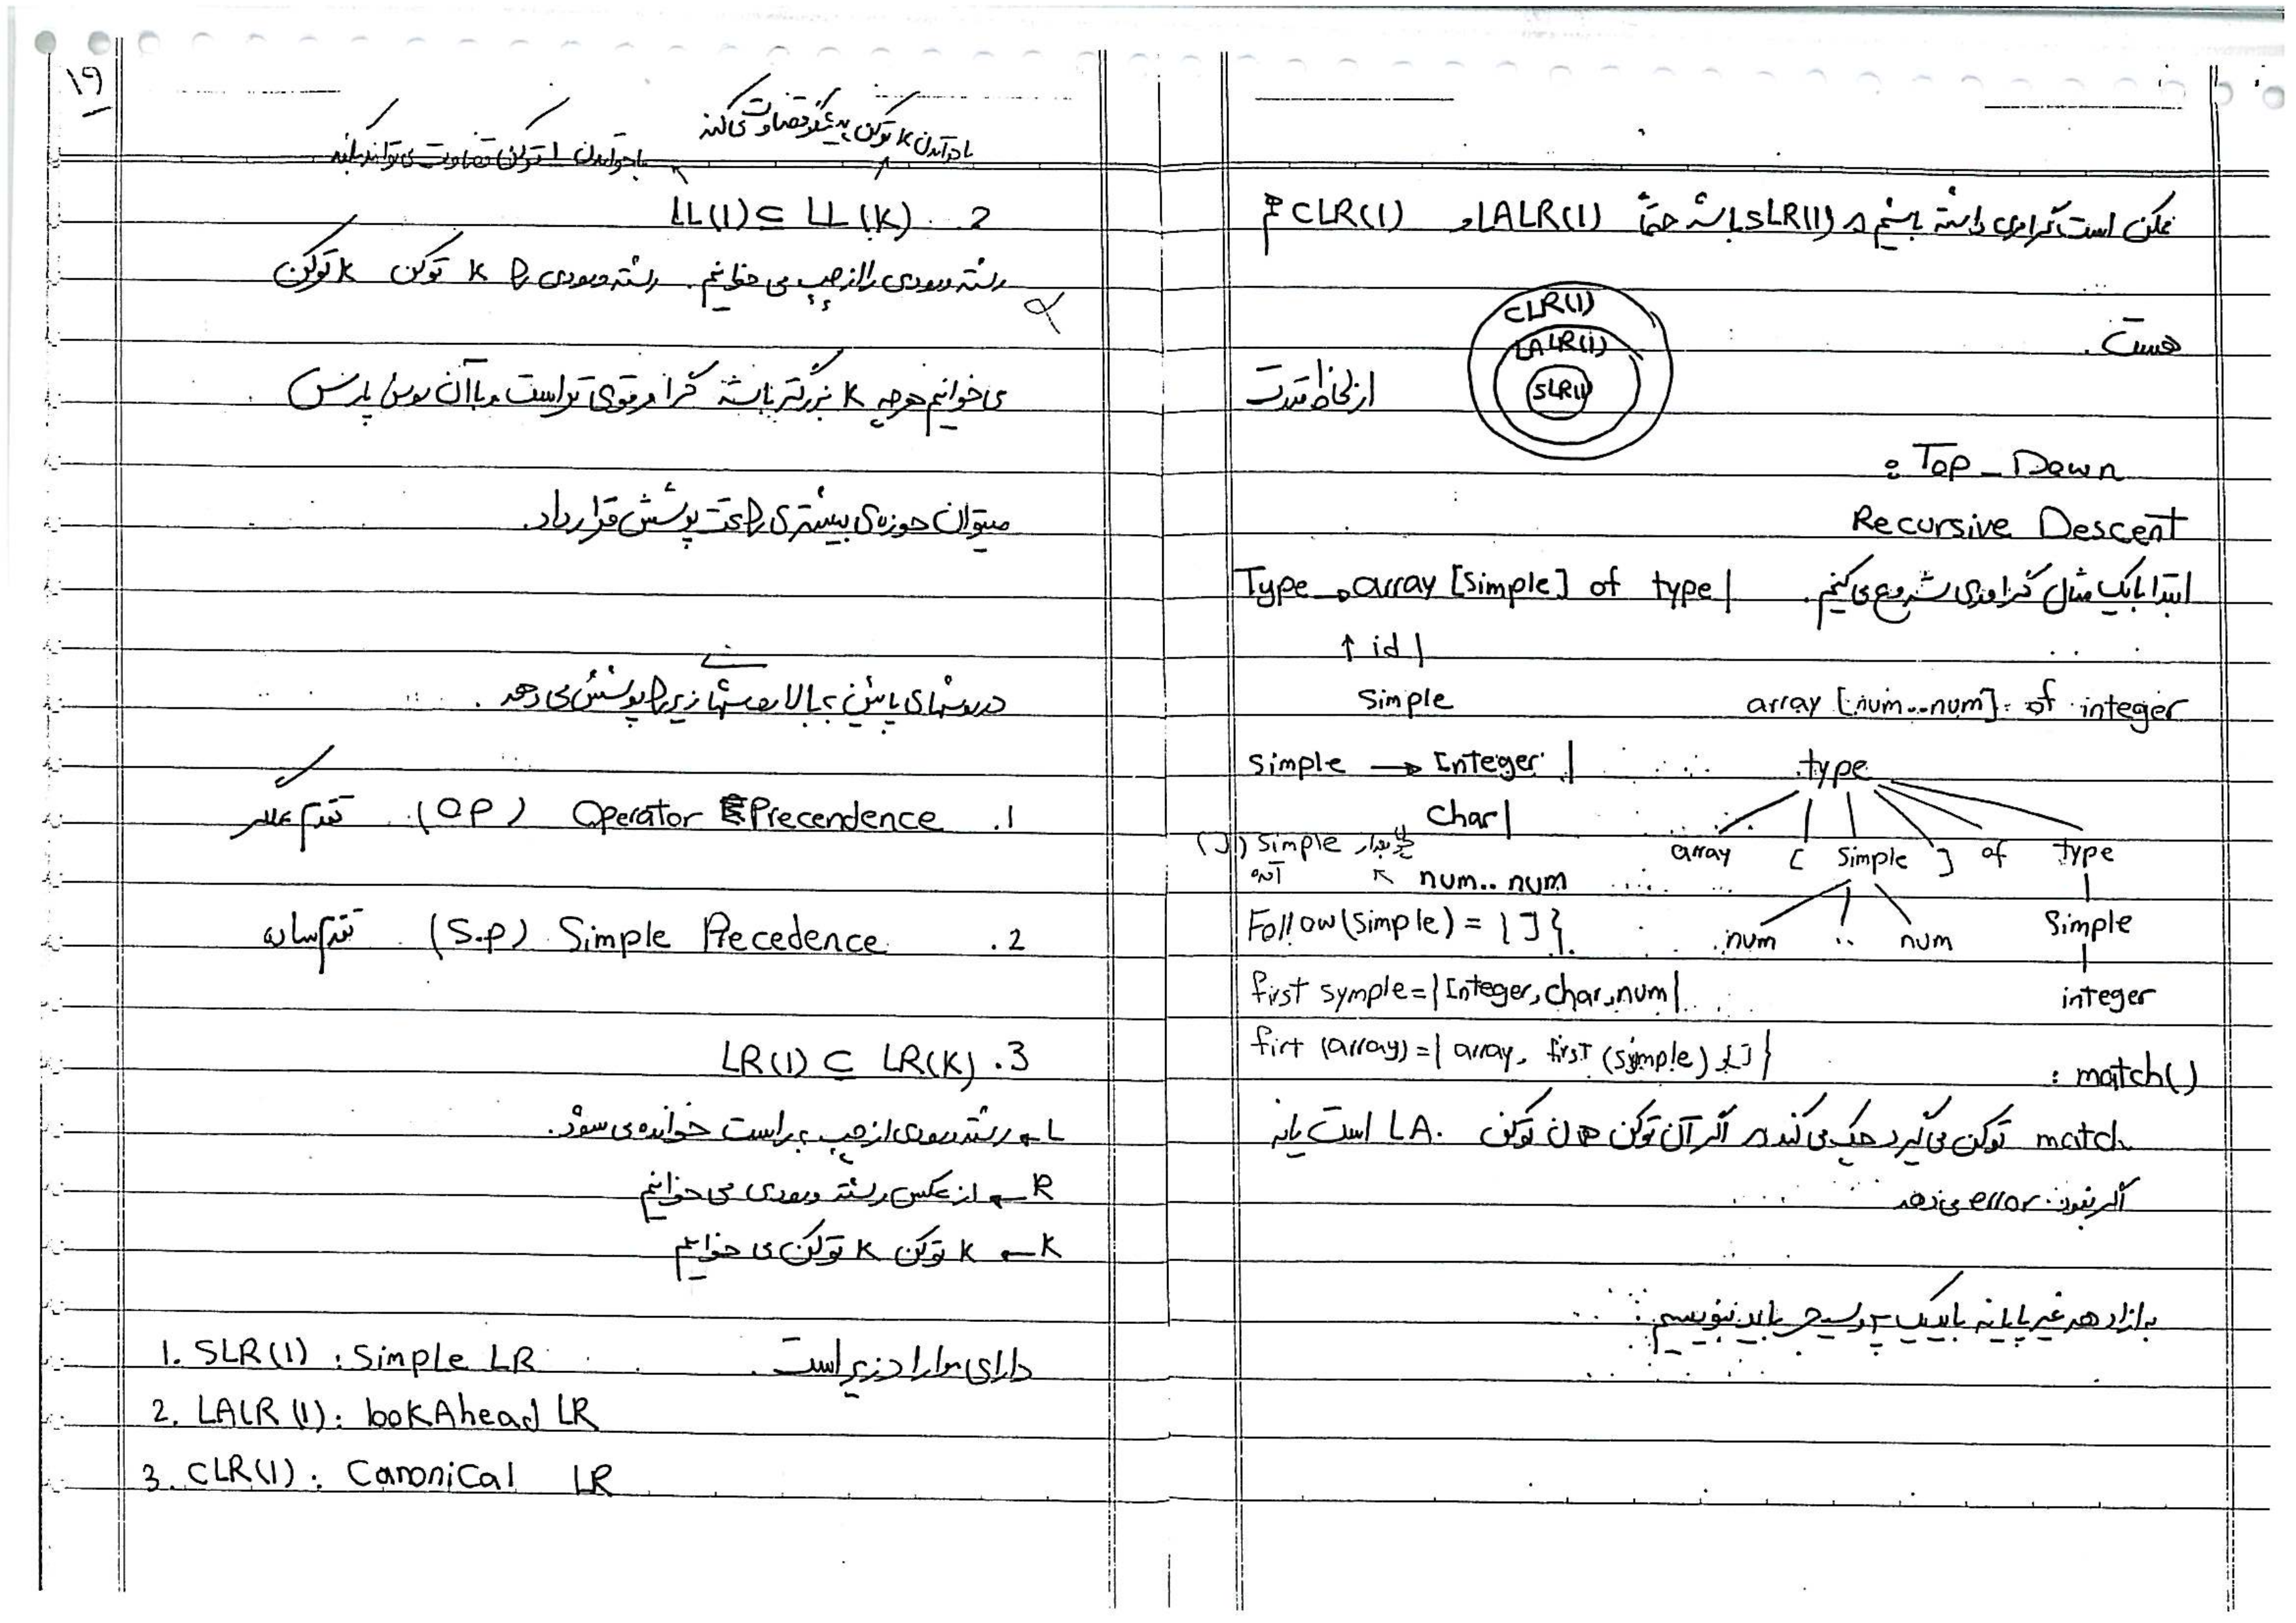 ۱۹
با خواندن k توکن به جلو قضاوت می کند
با خواندن ۱ توکن قضاوت می تواند بکند
2. LL(1) ⊆ LL(K)
رشته ورودی را از چپ می خوانیم. رشته ورودی را k توکن k توکن
می خوانیم هر چه k بزرگتر باشد گرامر قوی تر است و با آن روش پارس
میتوان حوزه ی بیشتری را تحت پوشش قرار داد.
در روشهای پایین به بالا روشها زیر را پوشش می دهد.
1. Operator Precendence (OP) تقدم عملگر
2. Simple Precedence (S.P) تقدم ساده
3. LR(1) ⊆ LR(K)
L ← رشته ورودی از چپ به راست خوانده می شود.
R ← از عکس رشته ورودی می خوانیم
K ← k توکن k توکن می خوانیم
دارای موارد زیر است.
1. SLR(1) : Simple LR
2. LALR(1) : look Ahead LR
3. CLR(1) : Canonical LR
ممکن است گرامری داشته باشیم که SLR(1) باشد حتماً LALR(1) و CLR(1) هم
هست.
CLR(1)
LALR(1)
SLR(1)
از لحاظ قدرت
Top_Down :
Recursive Descent
ابتدا با یک مثال گرامری شروع می کنیم.
Type → array [Simple] of type |
↑ id |
Simple
array [num..num] of integer
Simple → Integer |
Char |
num..num
(]) Simple
آمده
type
array [ Simple ] of type
num .. num
Simple
integer
Follow(Simple) = { ] }
first symple = { Integer, char, num }
firt (array) = { array, first (symple) []}
match() :
match توکن می گیرد چک می کند که اگر آن توکن همان توکن LA. است یا نه
اگر نبود error می دهد
به ازاء هر غیر پایانه باید یک پروسیجر باید بنویسیم :